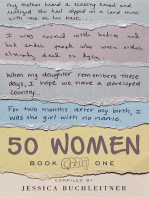 my mother heard a clicking sound and
realized she had stepped on a land mine
with me on her back.
I was covered with bodies and
hid under people who were either
already dead or dying.
When my daughter remembers these
days, I hope we have a developed
country...
For two months after my birth, I
was the girl with no name.
50 WOMEN
BOOK ONE
COMPILED BY
JESSICA BUCHLEITNER